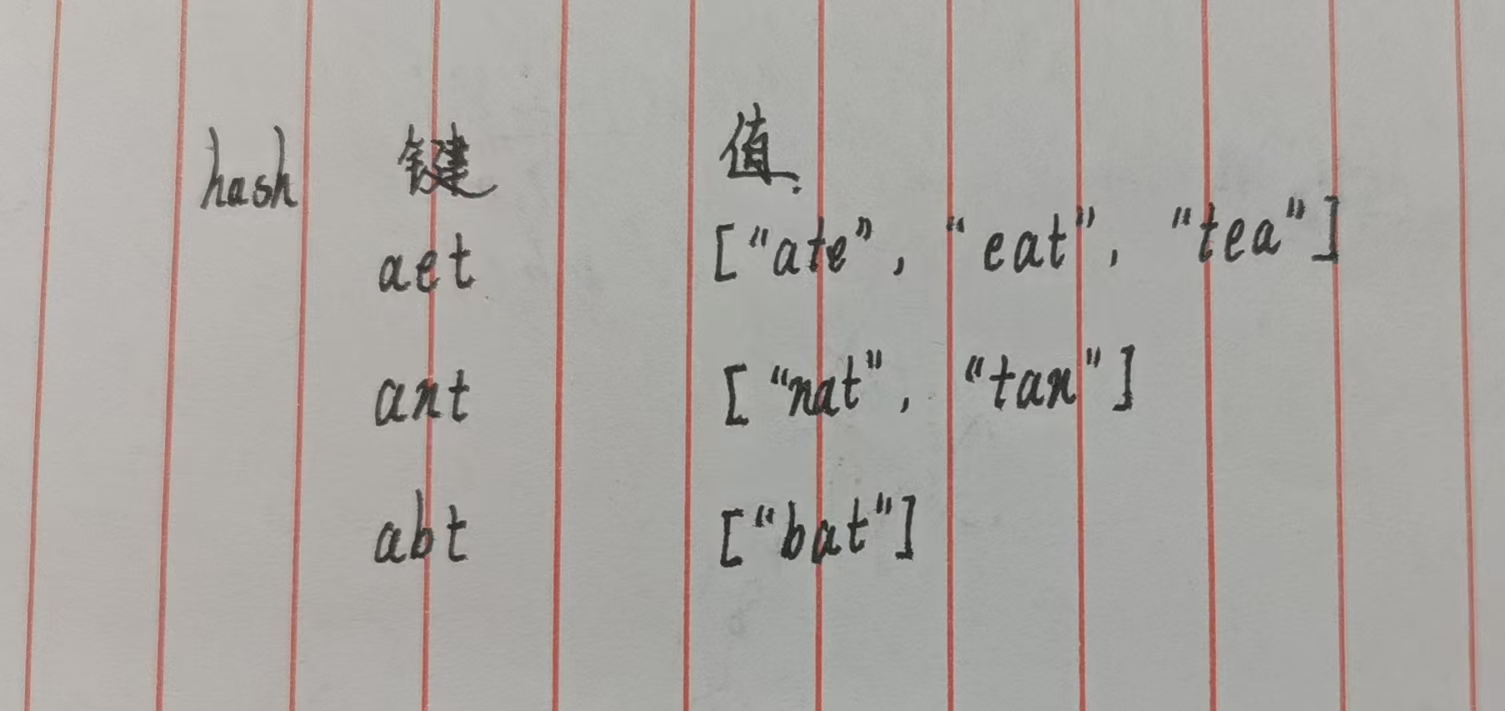 hash 键 值.
aet ["ate", "eat", "tea"]
ant ["nat", "tan"]
abt ["bat"]